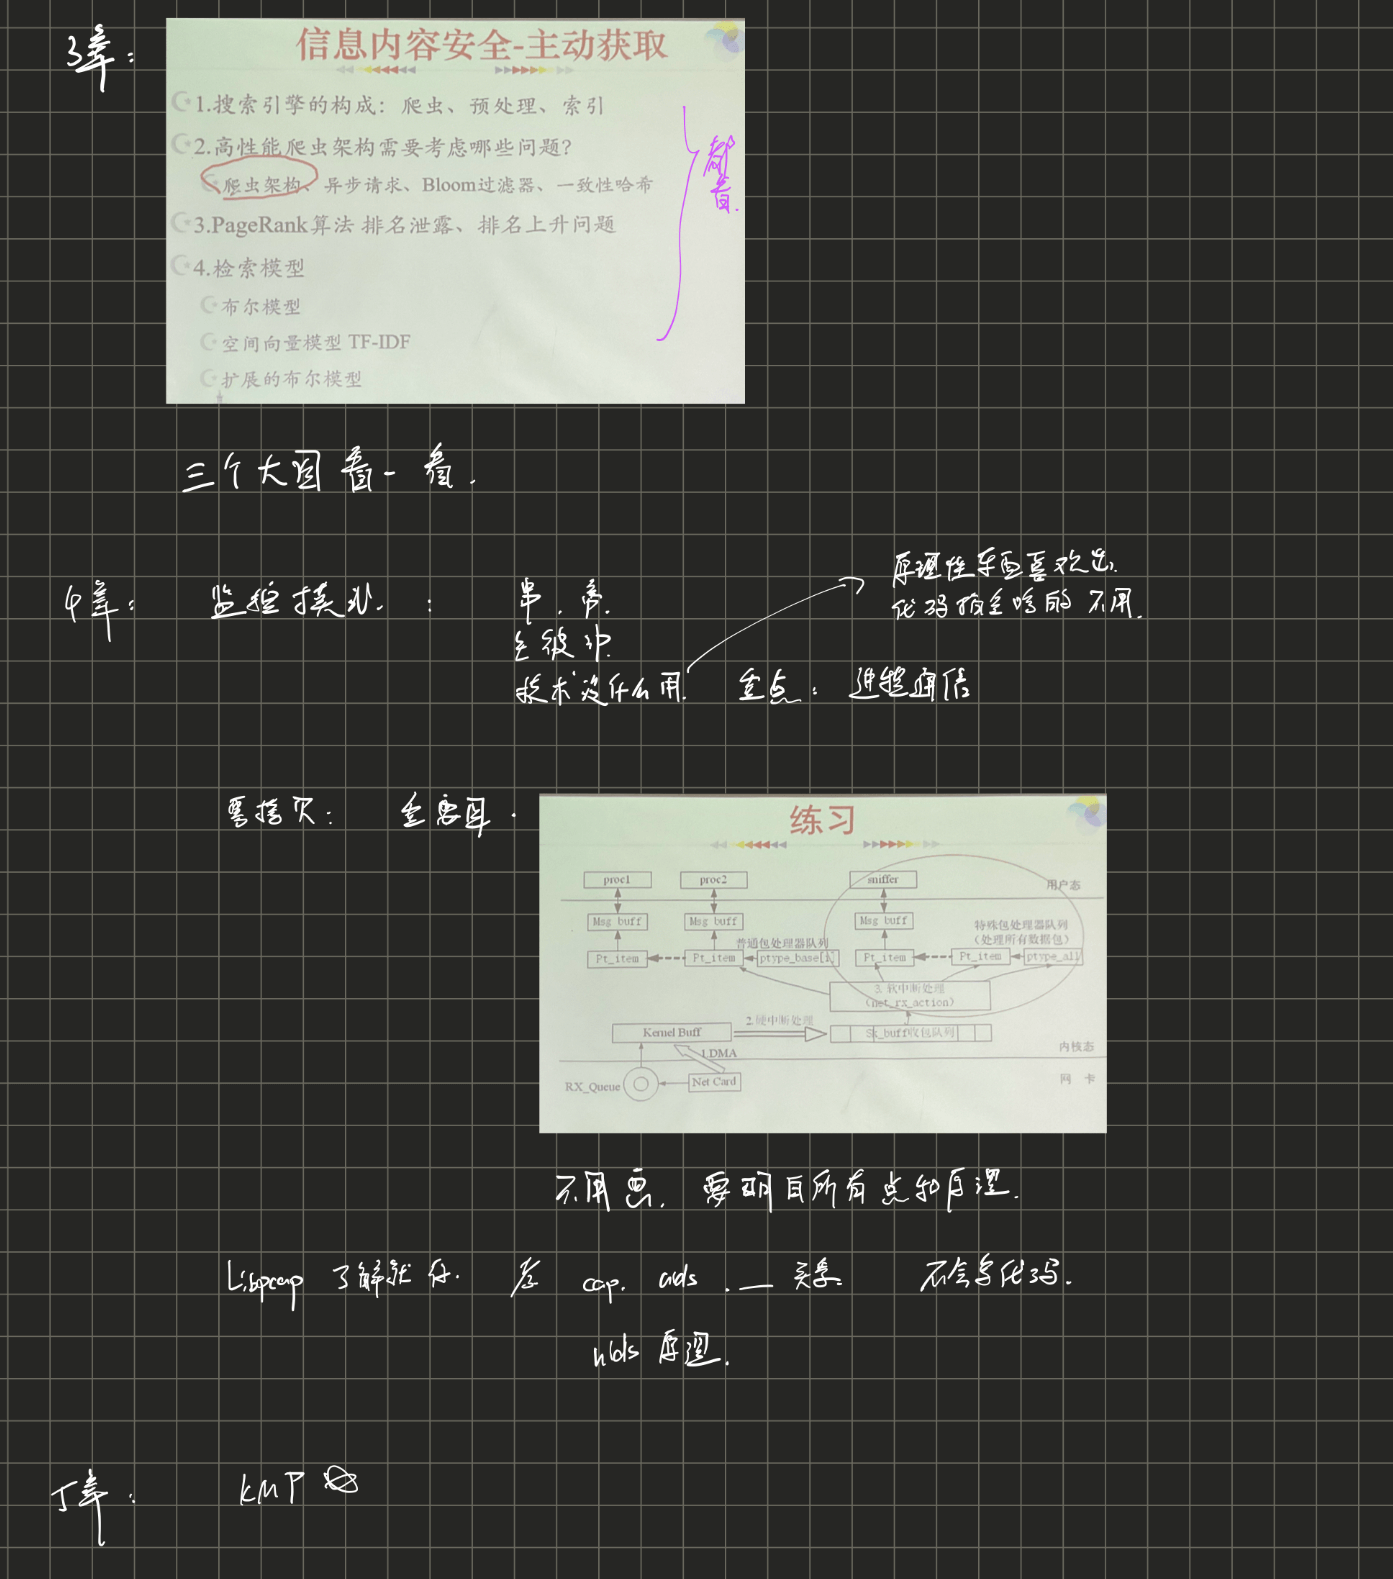 3章：
信息内容安全-主动获取
1.搜索引擎的构成：爬虫、预处理、索引
2.高性能爬虫架构需要考虑哪些问题?
爬虫架构、异步请求、Bloom过滤器、一致性哈希
3.PageRank算法 排名泄露、排名上升问题
4.检索模型
布尔模型
空间向量模型 TF-IDF
扩展的布尔模型
都看.
三个大图看一看.
4章：
监控模式：
串.旁.
技术没什么用.
原理性东西喜欢出.
代码 不用.
重点： 通信
重要图.
练习
proc1 proc2 sniffer 用户态
Msg buff Msg buff Msg buff
特殊包处理器队列
（处理所有数据包）
普通包处理器队列
Pt_item Pt_item ptype_base[] Pt_item Pt_item ptype_all
3.软中断处理
(net_rx_action)
2.硬中断处理
Kernel Buff Sk_buff收包队列
内核态
1.DMA
RX_Queue Net Card 网 卡
不用画. 要明白所有点和原理.
Libpcap 了解就好. cap. nids. 关系. 不会写代码.
nids 原理.
5章：
KMP